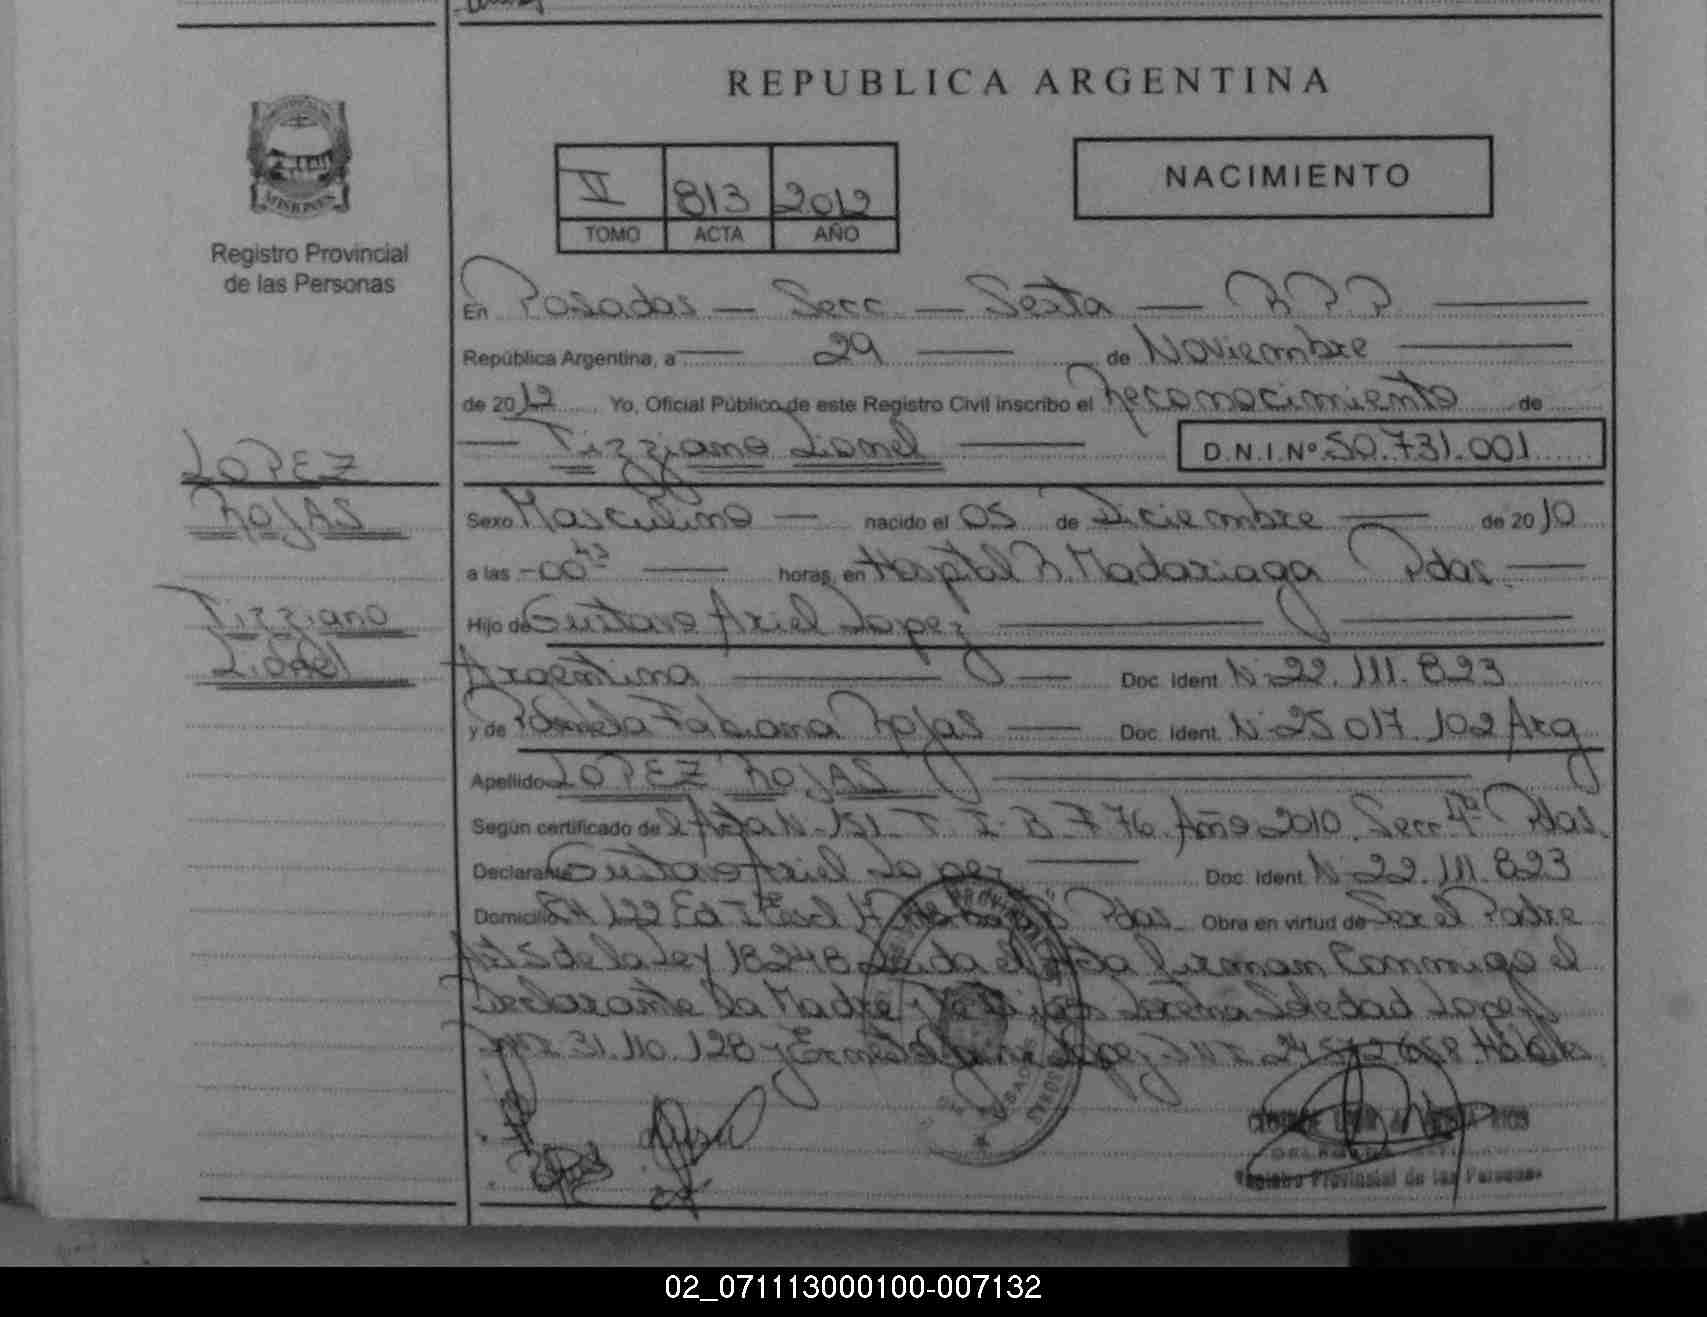 REPUBLICA ARGENTINA
NACIMIENTO
V 813 2012
TOMO ACTA AÑO
MISIONES
Registro Provincial
de las Personas
En Posadas — Secc — Sexta — R.P.P.
República Argentina, a 29 de Noviembre
de 2012 Yo, Oficial Público de este Registro Civil inscribo el Reconocimiento de
Tizziano Lionel D.N.I. Nº 50.731.001
LOPEZ
ROJAS
Tizziano
Lionel
Sexo Masculino — nacido el 05 de Diciembre de 2010
a las 00 43 horas, en Hospital R. Madariaga Pdas
Hijo de Gustavo Ariel Lopez
Argentina Doc. Ident. Nº 22.111.823
y de Pamela Fabiana Rojas Doc. Ident. Nº 25.017.102 Arg
Apellido LOPEZ ROJAS
Según certificado del Acta Nº 151 T I B F 76 Año 2010 Secc 4ª Pdas
Declarante Gustavo Ariel Lopez Doc. Ident. Nº 22.111.823
Domicilio 122 Pdas Obra en virtud de Ser el Padre
de la Ley 18248 Leida el Acta firman Conmigo el
Declarante La Madre y Lorena Soledad Lopez
DNI 31.110.128 y Lopez DNI Hábiles
Registro Provincial de las Personas
02_071113000100-007132